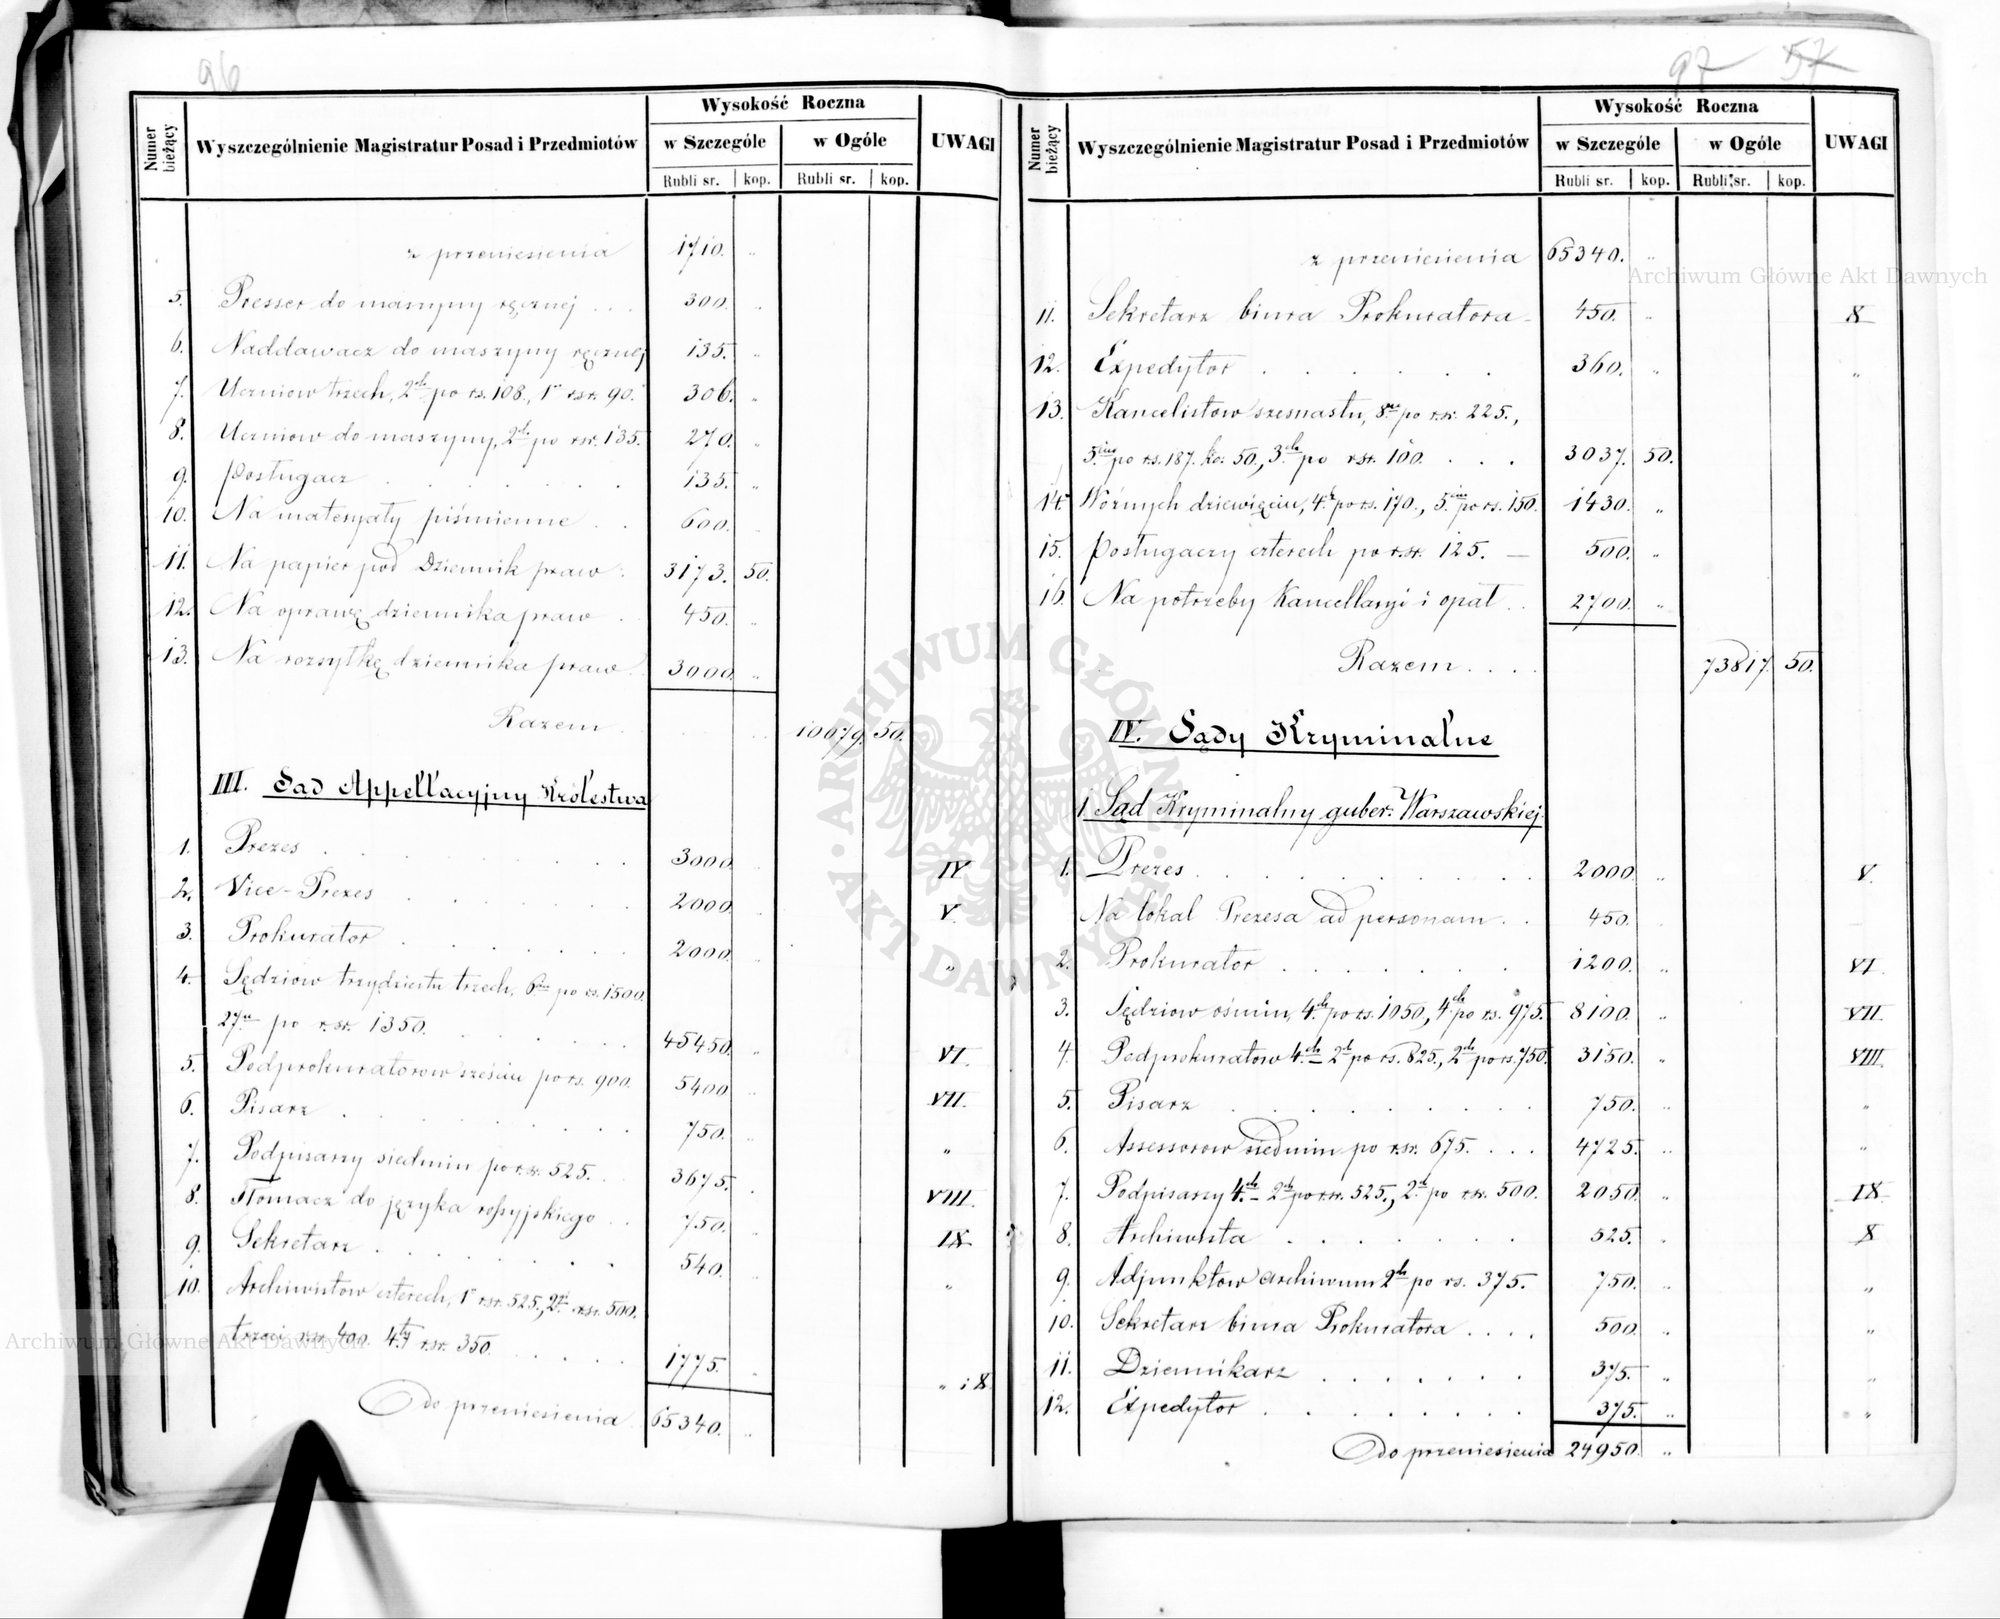 96
Numer bieżący
Wyszczególnienie Magistratur Posad i Przedmiotów
Wysokość Roczna
w Szczególe
w Ogóle
UWAGI
Rubli sr. kop. Rubli sr. kop.
z przeniesienia 1710. "
5. Presser do maszyny ręcznej . . . 300. "
6. Naddawacz do maszyny ręcznej 135. "
7. Uczniow trzech, 2ch po rs. 108., 1n rsr. 90. 306. "
8. Uczniow do maszyny, 2ch po rsr. 135. 270. "
9. Posługacz . . . . . . 135. "
10. Na materyały piśmienne . . 600. "
11. Na papier pod Dziennik praw . 3173. 50.
12. Na oprawę dziennika praw . 450. "
13. Na rozsyłkę dziennika praw 3000. "
Razem . 10679. 50.
III. Sąd Appellacyjny Królestwa
1. Prezes . . . . . . . 3000. IV.
2. Vice-Prezes . . . . . . 2000. V.
3. Prokurator . . . . . . 2000. "
4. Sędziow trzydziestu trzech, 6ciu po rs. 1500.
27u po rsr. 1350. . . . . . 45450. " VI.
5. Podprokuratorow sześciu po rs. 900. 5400 VII.
6. Pisarz . . . . . . . 750. " "
7. Podpisarzy siedmiu po rsr. 525. . . 3675. " VIII.
8. Tłomacz do języka rossyjskiego . . 750. " IX.
9. Sekretarz . . . . . . 540. " "
10. Archiwistow czterech, 1n rsr. 525., 2gi rsr. 500.
trzeci rsr. 400. 4ty rsr. 350. . . . . 1775. " " i X.
Do przeniesienia 65340. "
97 57
Numer bieżący
Wyszczególnienie Magistratur Posad i Przedmiotów
Wysokość Roczna
w Szczególe
w Ogóle
UWAGI
Rubli sr. kop. Rubli sr. kop.
z przeniesienia 65340. "
11. Sekretarz biura Prokuratora - 450. " X
12. Expedytor . . . . . 360. " "
13. Kancelistow szesnastu, 8u po rsr. 225.,
5ciu po rs. 187. ko: 50., 3ch po rsr. 100. . . . 3037. 50.
14. Woźnych dziewięciu, 4ch po rs. 170., 5ciu po rs. 150. 1430. "
15. Posługaczy czterech po rsr. 125. — 500. "
16. Na potrzeby Kancellaryi i opał . . 2700. "
Razem . . . . 73817. 50.
IV. Sądy Kryminalne
1 Sąd Kryminalny guber: Warszawskiej.
1. Prezes . . . . . . . . 2000. " V.
Na lokal Prezesa ad personam . . 450.
2. Prokurator . . . . . . 1200. " VI.
3. Sędziow ośmiu, 4ch po rs. 1050., 4ch po rs. 975. 8100. " VII.
4. Podprokuratorow 4ch - 2ch po rs. 825., 2ch po rs. 750. 3150. " VIII.
5. Pisarz . . . . . . 750. " "
6. Assessorow siedmiu po rsr. 675. . . . 4725. " "
7. Podpisarzy 4ch - 2ch po rsr. 525., 2ch po rsr. 500. 2050. " IX.
8. Archiwista . . . . . 525. " X
9. Adjunktow archiwum 2ch po rs. 375. 750. " "
10. Sekretarz biura Prokuratora . . . . 500. " "
11. Dziennikarz . . . . . . 375. " "
12. Expedytor . . . . . . . 375. " "
Do przeniesienia 24950. "
Archiwum Główne Akt Dawnych
Archiwum Główne Akt Dawnych
ARCHIWUM GŁÓWNE · AKT DAWNYCH ·